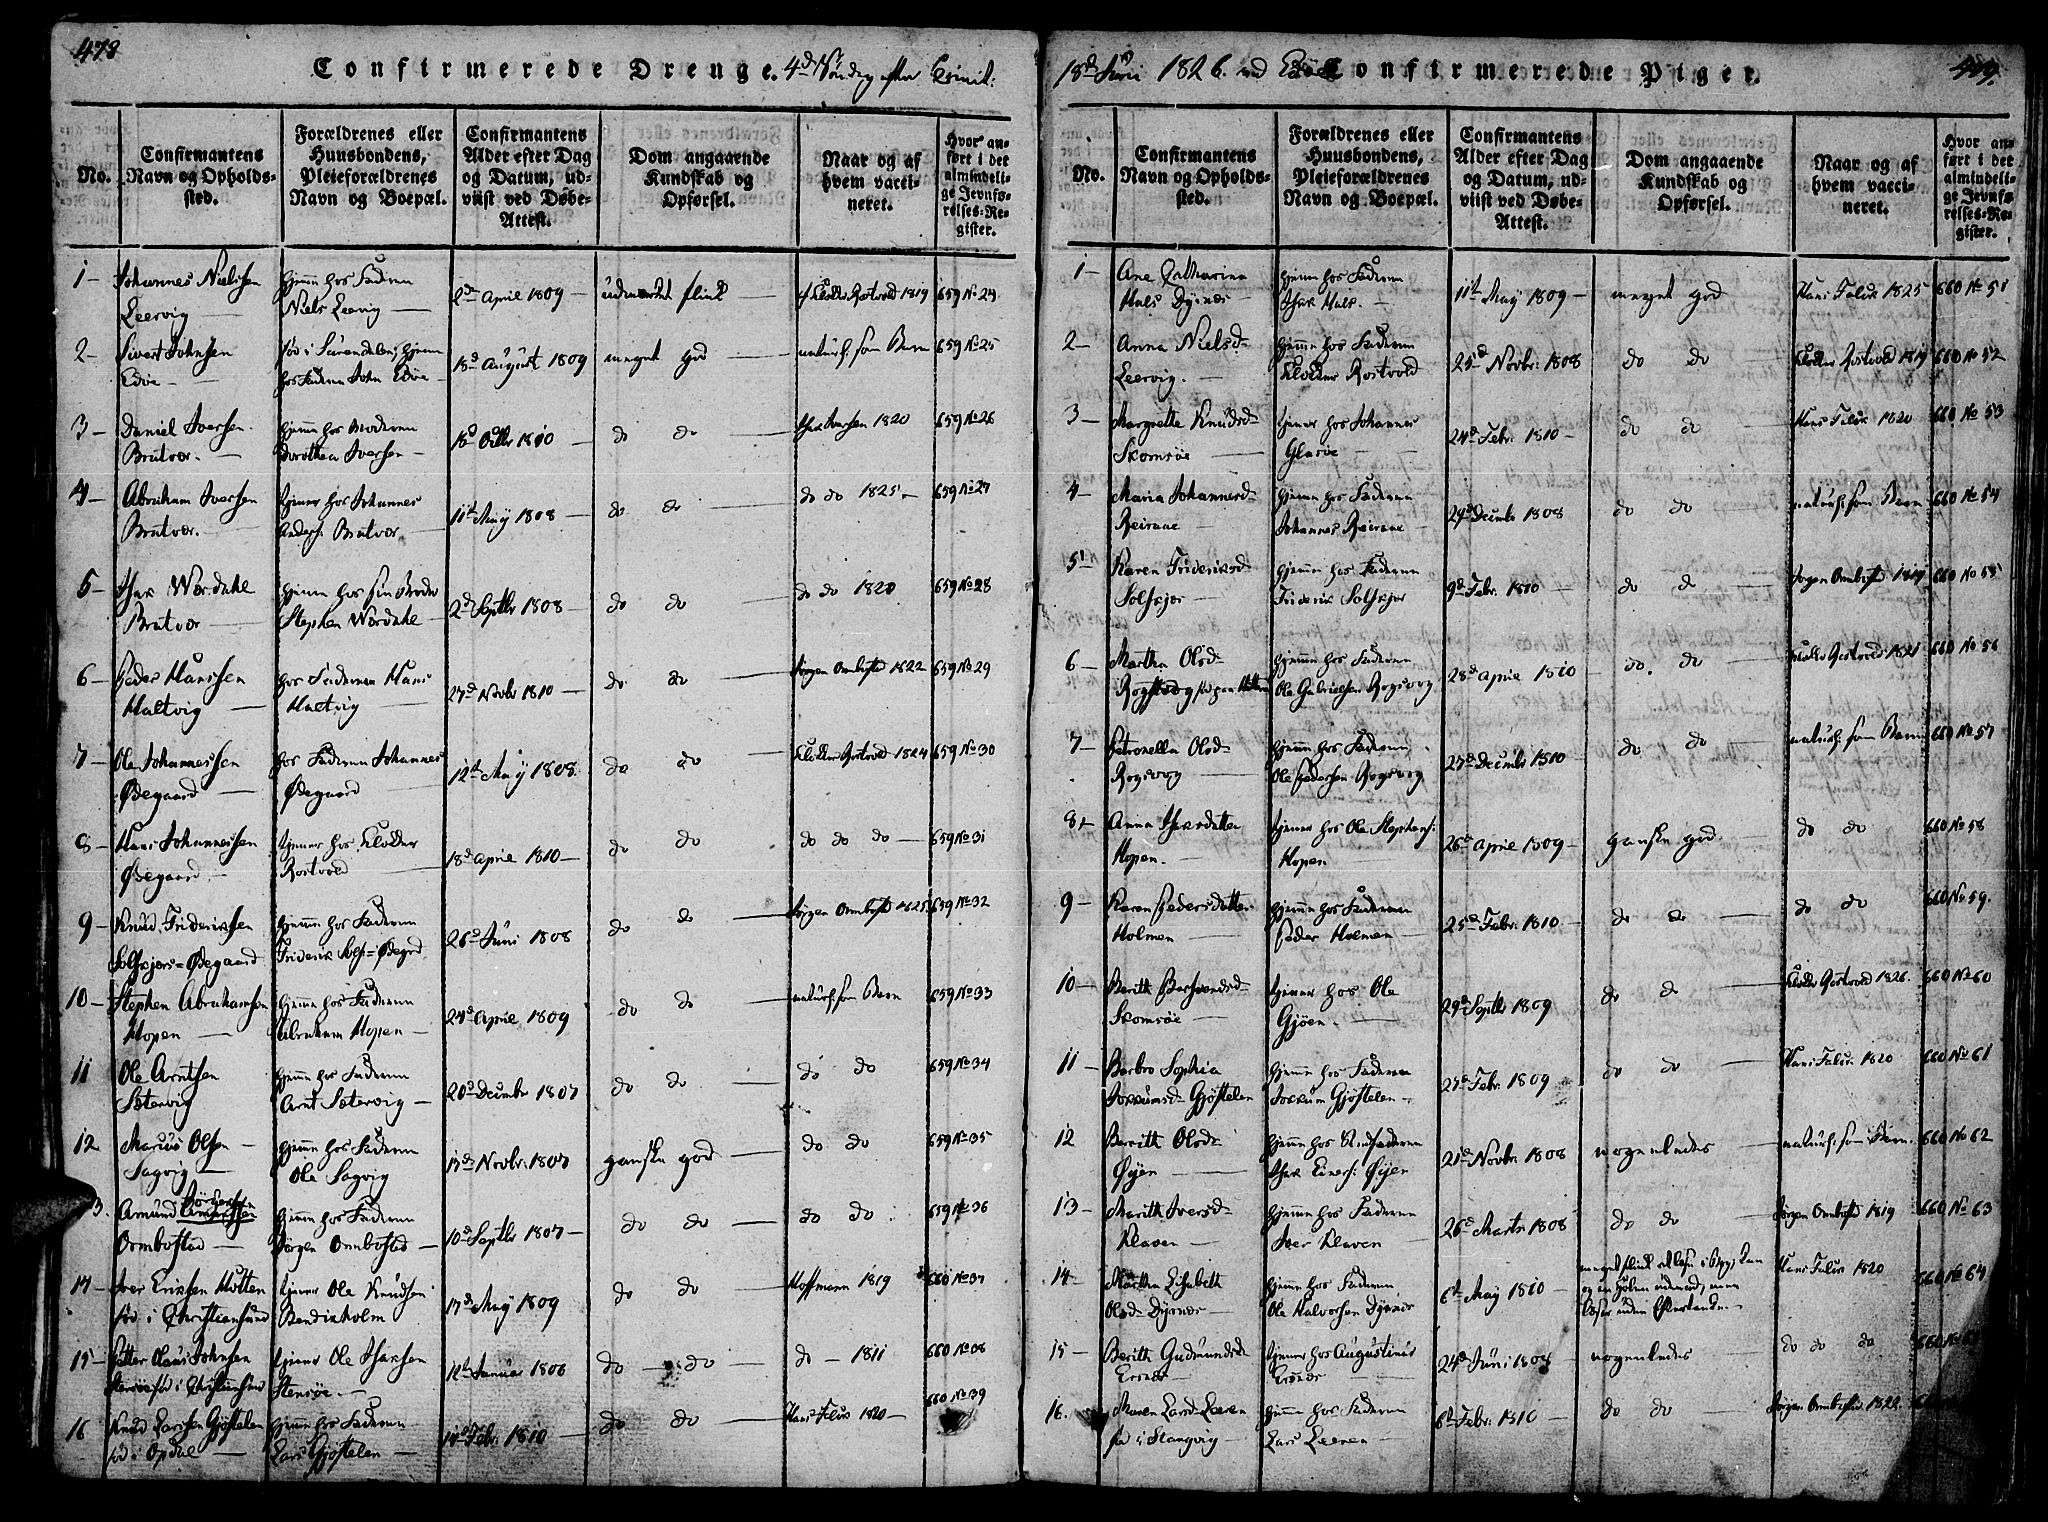 478
Confirmerede Drenge. 4d Søndag efter Trinit:
No.
Confirmantens
Navn og Opholds-
sted.
Forældrenes eller
Huusbondens,
Pleieforældrenes
Navn og Boepæl.
Confirmantens
Alder efter Dag
og Datum, ud-
viist ved Døbe-
Attest.
Dom angaaende
Kundskab og
Opførsel.
Naar og af
hvem vacci-
neret.
Hvor an-
ført i det
almindeli-
ge Jevnfø-
relses-Re-
gister.
1 Johannes Nielssen
Leervig
hjemme hos Faderen
Niels Leervig
2d April 1809
udmærket flink
Kloкker Rostvold 1819
659 No 24
2 Sivert Johnsen
Edøe
hjemme
hos Faderen John Edøe
18d August 1809
meget god
naturl. som Barn
659 No 25
3 Daniel Iversen
Brutvær
hjemme hos Moderen
Dorothea Iversen
18d Octbr 1810
do do
Iversen 1820
659 No 26
4 Abraham Iversen
Brutvær
tjener hos Johannes
Anders. Brutvær
11te May 1808
do do
do do 1825
659 No 27
5 Isak Nordahle
Brutvær
hjemme hos sin Broder
Stephen Nordahle
2d Septbr 1808
do do
do do 1820
659 No 28
6 Peder Hanssen
Haltvig
hos Faderen Hans
Haltvig
27d Novbr 1810
do do
Jørgen Ormbostd 1822
659 No 29
7 Ole Johannessen
Ødegaard
hos Faderen Johannes
Ødegaard
12te May 1808
do do
Klokker Rostvold 1824
659 No 30
8 Hans Johannessen
Ødegaard
tjener hos Klokker
Rostvold
18d April 1810
do do
do do do
659 No 31
9 Knud Friderikssen
Solskjørs=Ødegaard
hjemme hos Faderen
Friderik Sols=Ødegrd
26d Juni 1808
do do
Jørgen Ormbostd 1825
659 No 32
10 Stephen Abrahamsen
Hopen
hjemme hos Faderen
Abraham Hopen
24d April 1809
do do
naturl. som Barn
659 No 33
11 Ole Arntsen
Sætervig
hjemme hos Faderen
Arnt Sætervig
20d Decembr 1807
do do
do do
659 No 34
12 Marius Olsen
Sagvig
hjemme hos Faderen
Ole Sagvig
17d Novbr: 1807
ganske god
do do
659 No 35
13. Amund Jørgensen
Ormbostad
hjemme hos Faderen
Jørgen Ormbostad
10d Septbr 1807
do do
do do
659 No 36
14 Iver Eriksen
fød i Christiansund
tjener Ole Knudsen
Bendixholm
17d May 1809
do do
Hoffmann 1819
660 No 37
15 Petter Olaus Johnsen
Stensøe fød i Christiansund
tjener Ole Isaksen
Stensøe
12te Januar 1808
do do
do 1811
660 No 38
16 Knud Larssen Gjøstelen
fød i Opdal
hjemme hos Faderen
Lars Gjøstelen
14d Febr: 1810
do do
Hans Falix 1820
660 No 39
18d Juni 1826. ved Edøe Confirmerede Piger.
479.
No.
Confirmantens
Navn og Opholds-
sted.
Forældrenes eller
Huusbondens,
Pleieforældrenes
Navn og Boepæl.
Confirmantens
Alder efter Dag
og Datum, ud-
viist ved Døbe-
Attest.
Dom angaaende
Kundskab og
Opførsel.
Naar og af
hvem vacci-
neret.
Hvor an-
ført i det
almindeli-
ge Jevnfø-
relses-Re-
gister.
1 Ane Catharina
Hals Dyrnes
hjemme hos Faderen
Isak Hals
11te May 1809
meget god
Hans Falix 1825
660 No 51
2 Anna Nielsd
Leervig
hjemme hos
Klokker Rostvold
25d Novbr: 1808
do do
Klokker Rostvold 1819
660 No 52
3 Margrethe Knudsd
Skomsøe
tjener hos Johannes
Glasøe
24d Febr: 1810
do do
Hans Falix 1820
660 No 53
4 Maria Johannesd
Reiraae
hjemme hos Faderen
Johannes Reiraae
29d Decembr 1808
do do
naturl. som Barn
660 No 54
5 Karen Frideriksd
Solskjør
hjemme hos Faderen
Friderik Solskjør
9d Febr: 1810
do do
Jørgen Ormbostd 1819
660 No 55
6 Martha Olsd
hjemme hos Faderen
Ole Gabrielsen Rogsvog
28d April 1810
do do
Klokker Rostvold 1821
660 No 56
7 Petronella Olsd
Rogsvog
hjemme hos Faderen
Ole Pedersen Rogsvog
27d Decembr 1810
do do
naturl. som Barn
660 No 57
8 Anna Isaksdatter
Hopen
tjener hos Ole Stephens:
Hopen
26d April 1809
ganske god
do do
660 No 58
9 Karen Pedersdatter
Holmen
hjemme hos Faderen
Peder Holmen
25d Febr: 1810
do do
do do
660 No 59.
10 Berith
Skomsøe
tjener hos Ole
Gjøen
29d Septbr 1809
do do
Klokker Rostvold 1826
660 No 60
11 Barbro Sophia
Jokkumsd Gjøstelen
hjemme hos Faderen
Jokkum Gjøstelen
27d Febr: 1809
do do
Hans Falix 1820
660 No 61
12 Berith Olsd
Øyen
hjemme hos Stedfaderen
Isak Einers: Øyen
21d Novbr: 1808
nogenledes
naturl. som Barn
660 No 62
13 Marith Iversd
Klaven
hjemme hos Faderen
Iver Klaven
26d Marts 1808
do do
Jørgen Ormbostd 1819
660 No 63
14 Martha Lisabeth
Olsd Dyrnes
hjemme hos Faderen
Ole Halvorsen Dyrnes
6te May 1810
læser uden Eftertanke
Hans Falix 1820
660 No 64
15 Berith Gudmundsd
Ersnæs
tjener hos Augustinus
Ersnæs
24d Juni 1808
nogenledes
do do do
16. Maren Larsd Leeren
fød i Stangvig
hjemme hos Faderen
Lars Leeren
6te Febr: 1810
do do
Jørgen Ormbostd 1822